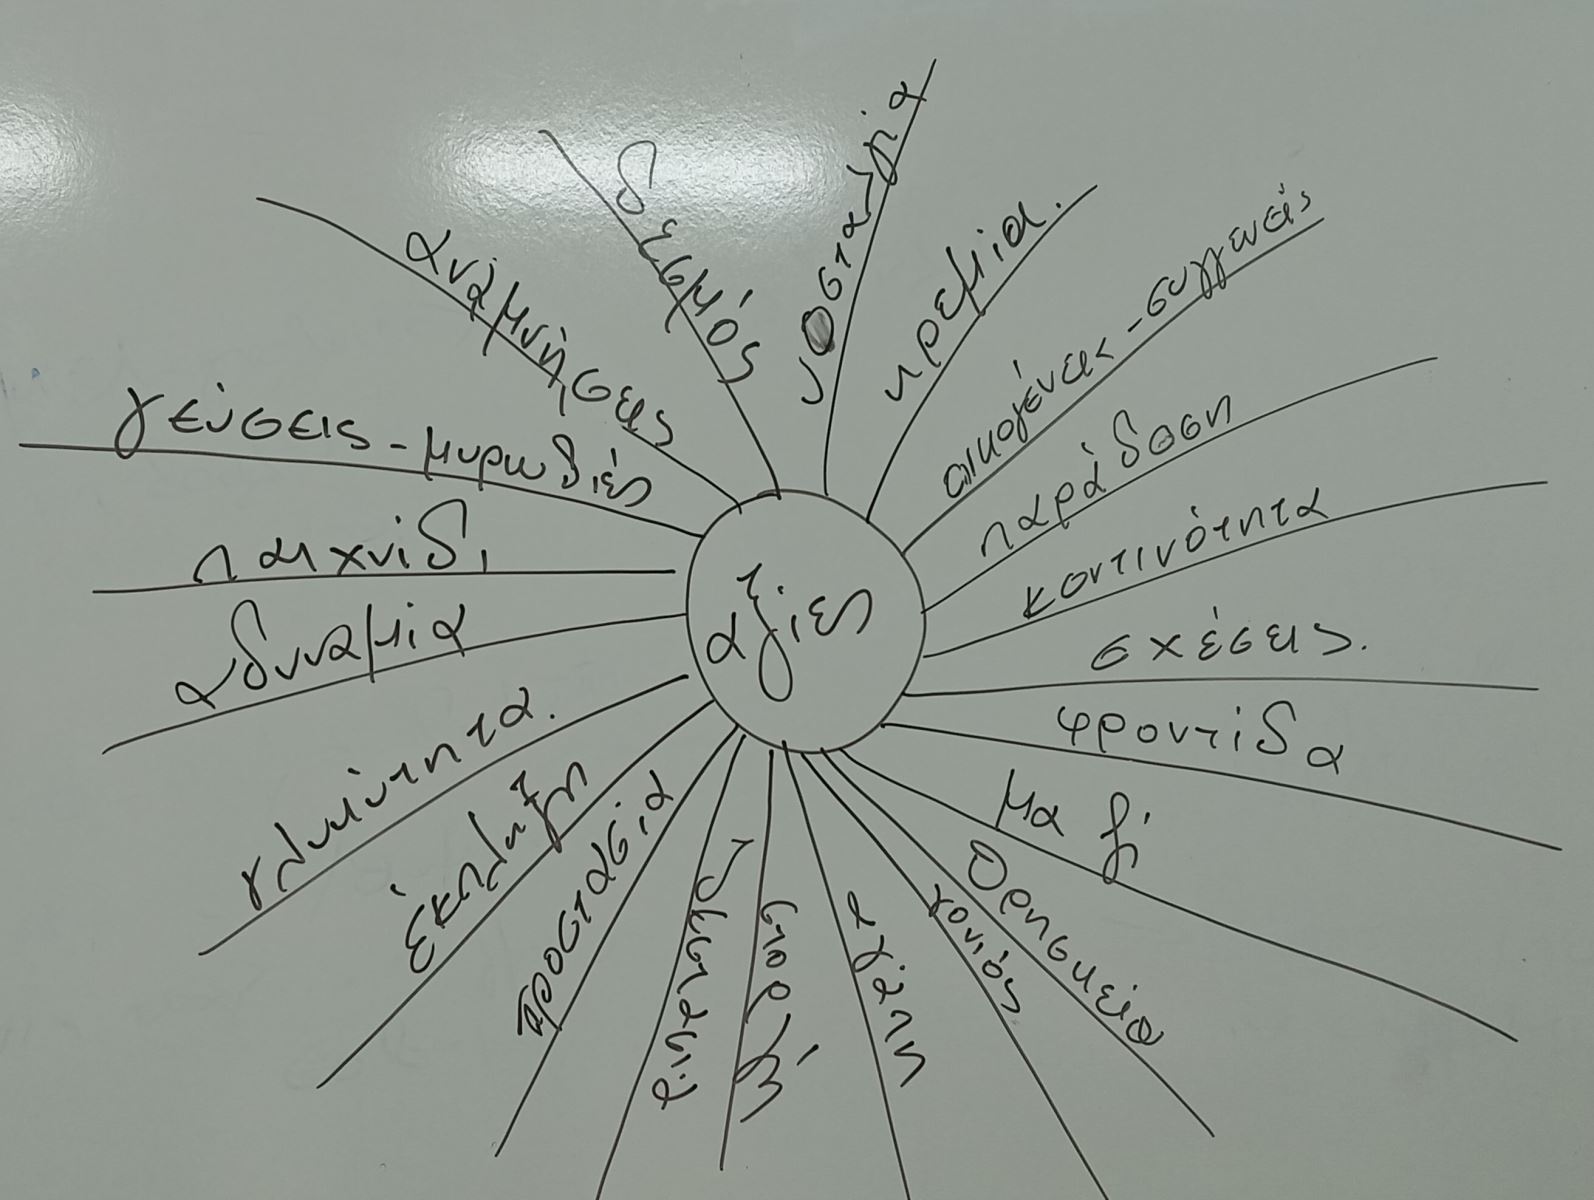 αξίες
δεσμός
νοσταλγία
ηρεμία.
οικογένεια - συγγενείς
παράδοση
κοντινότητα
σχέσεις.
φροντίδα
μαζί
θρησκεία
γονιός
αγάπη
στοργή
προστασία
έκπληξη
γλυκύτητα.
αδυναμία
παιχνίδι
γεύσεις - μυρωδιές
αναμνήσεις